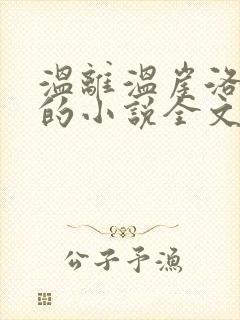 溫離溫崖洛
的小說全文
公子予漁